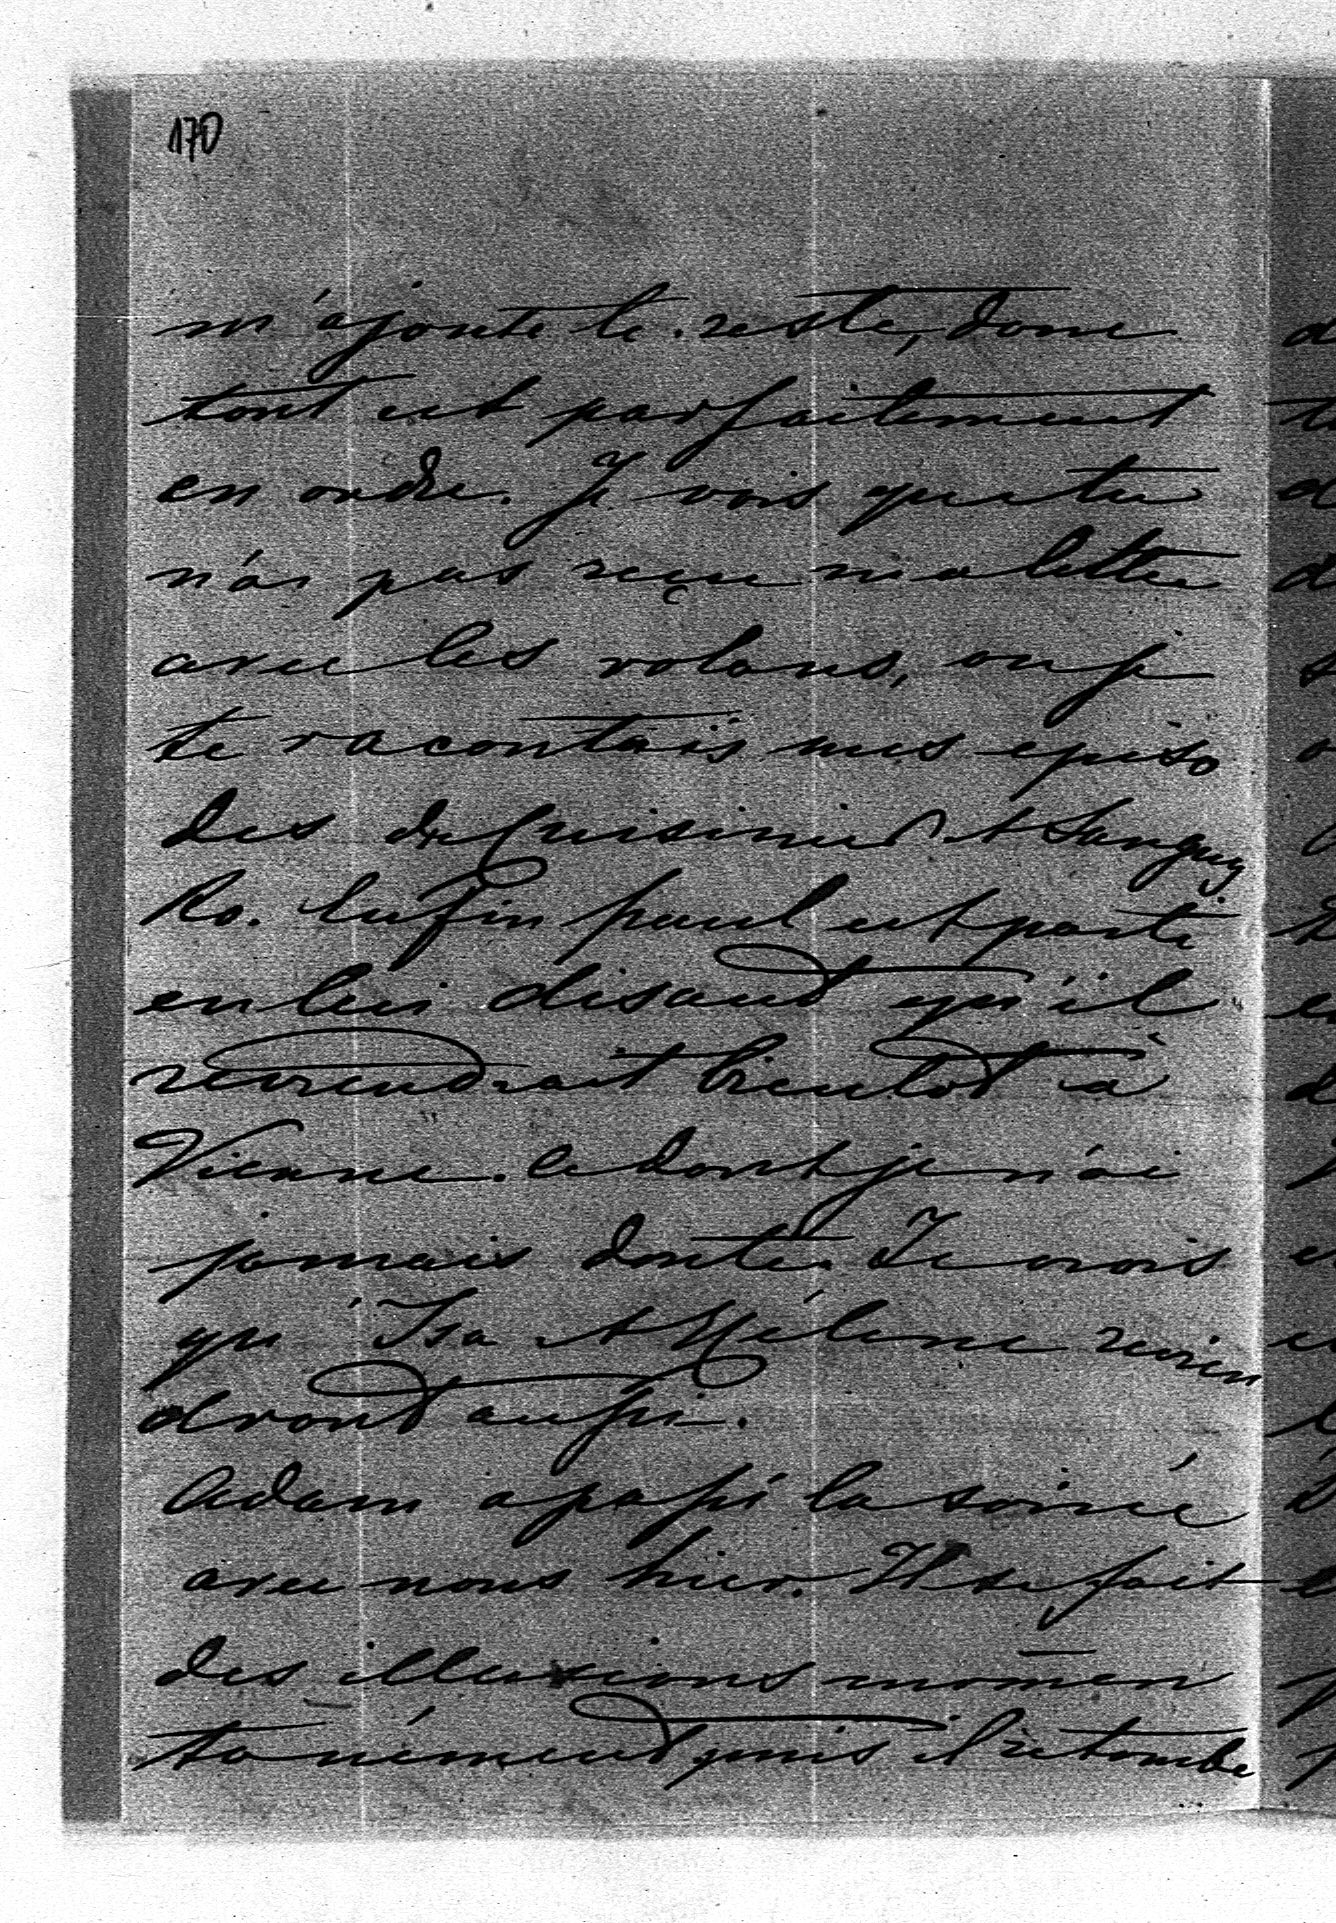 170
m'ajoute le reste, donc
tout est parfaitement
en ordre. Je vois que tu
n'as pas reçue ma lettre
avec les volans, ou je
te racontais mes episo
des de Cuisinier et Sanguy
ko. Enfin Paul est parti
en lui disant qu'il
reviendrait bientot à
Vienne. Ce dont je n'ai
jamais douté. Je crois
qu'Isa et Hélène revien
dront aussi.
Adam a passé la soirée
avec nous hier. Il se fait
des illusions momen
tanément puis il retombe